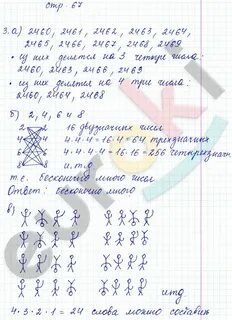 стр. 67
3. а) 2460, 2461, 2462, 2463, 2464,
2465, 2466, 2467, 2468, 2469
• из них делятся на 3 четыре числа:
2460, 2463, 2466, 2469
• из них делятся на 4 три числа:
2460, 2464, 2468
б) 2, 4, 6 и 8
2 2 16 двузначных чисел
4 4 4·4·4 = 16·4 = 64 трехзначных
6 6 4·4·4·4 = 16·16 = 256 четырехзначн.
8 8 и.т.д
т.е. бесконечно много чисел
Ответ: бесконечно много
в)
итд
4·3·2·1 = 24 слова можно составить